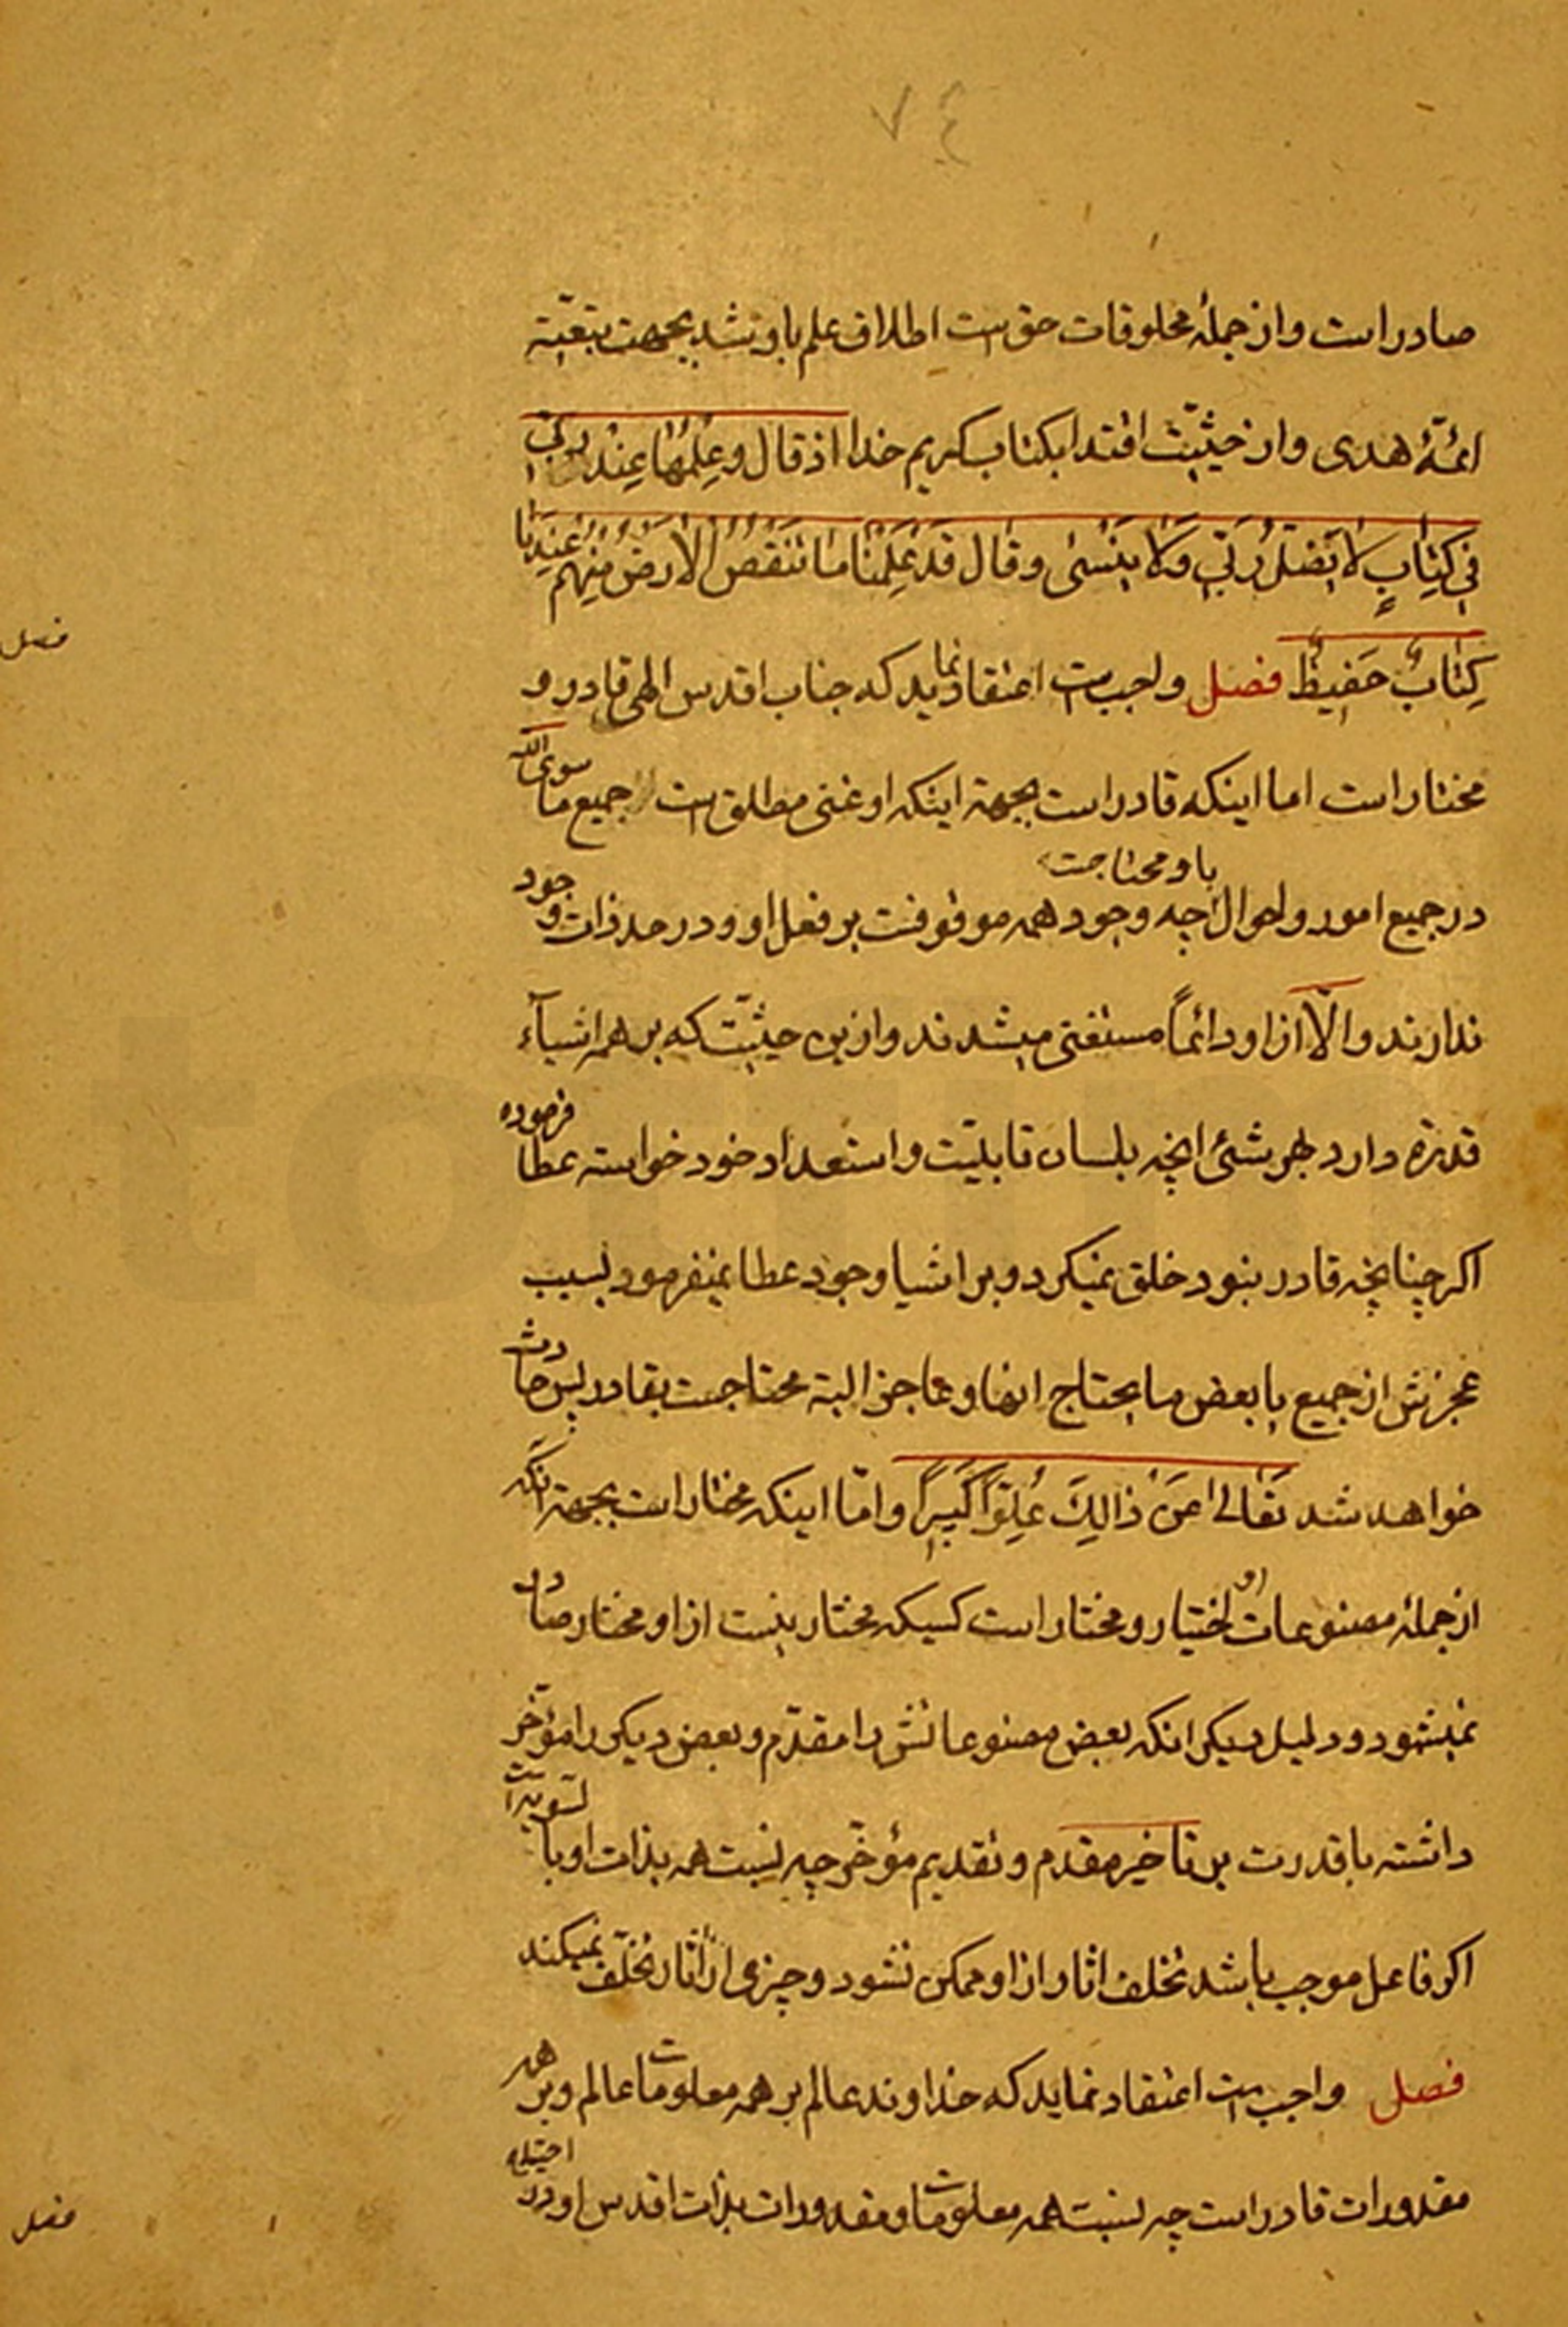 ۷۴
صادر است و از جملهٔ مخلوقات حق است اطلاق علم باو نشد بجهت تبعیّة
ائمّهٔ هدی و از حیثیّت اقتدا بکتاب کریم خدا اذ قال و عِلْمُها عِنْدَ رَبّی
فی کِتابٍ لا یَضلّ رَبّی وَلا یَنْسی و قال قَدْ عَلِمْنا ما تَنْقُصُ الْاَرضُ مِنْهُم عِنْدَنا
کِتابٌ حَفیظٌ فصل واجب است اعتقاد نماید که جناب اقدس الهی قادر و
مختار است اما اینکه قادر است بجهة اینکه او غنی مطلق است جمیع ما سوی الله
در جمیع امور و احوال باو محتاجست چه وجود همه موقوفست بر فعل او و در حد ذات وجود
ندارند و الّا از او دائماً مستغنی میشدند و ازین حیثیّت که بر همه اشیآء
قدرة دارد بهر شئ انچه بلسان قابلیّت و استعداد خود خواسته عطا فرموده
اکر چنانچه قادر نبود خلق نمیکرد و بر اشیا وجود عطا نمیفرمود بسبب
عجزش از جمیع یا بعض ما یحتاج انها و عاجز البتة محتاجست بقادر پس حادث
خواهد شد تَعالی عَنْ ذالِکَ عُلِوّاً کَبیراً و امّا اینکه مختار است بجهة انکه
از جملهٔ مصنوعات او اختیار و مختار است کسیکه مختار نیست از او مختار صادر
نمیشود و دلیل دیکر انکه بعض مصنوعاتش را مقدّم و بعض دیکر را مؤخّر
داشته با قدرت بر تاخیر مقدم و تقدیم مؤخّر چه نسبت همه بذات او بالسّویّه است
اکر فاعل موجب باشد تخلف اثار از او ممکن نشود و چیزی از اثار تخلّف نمیکند
فصل واجب است اعتقاد نماید که خداوند عالم بر همه معلومات عالم و بر همه
مقدورات قادر است چه نسبت همه معلومات و مقدورات بذات اقدس او در احتیاج
فصل
فصل